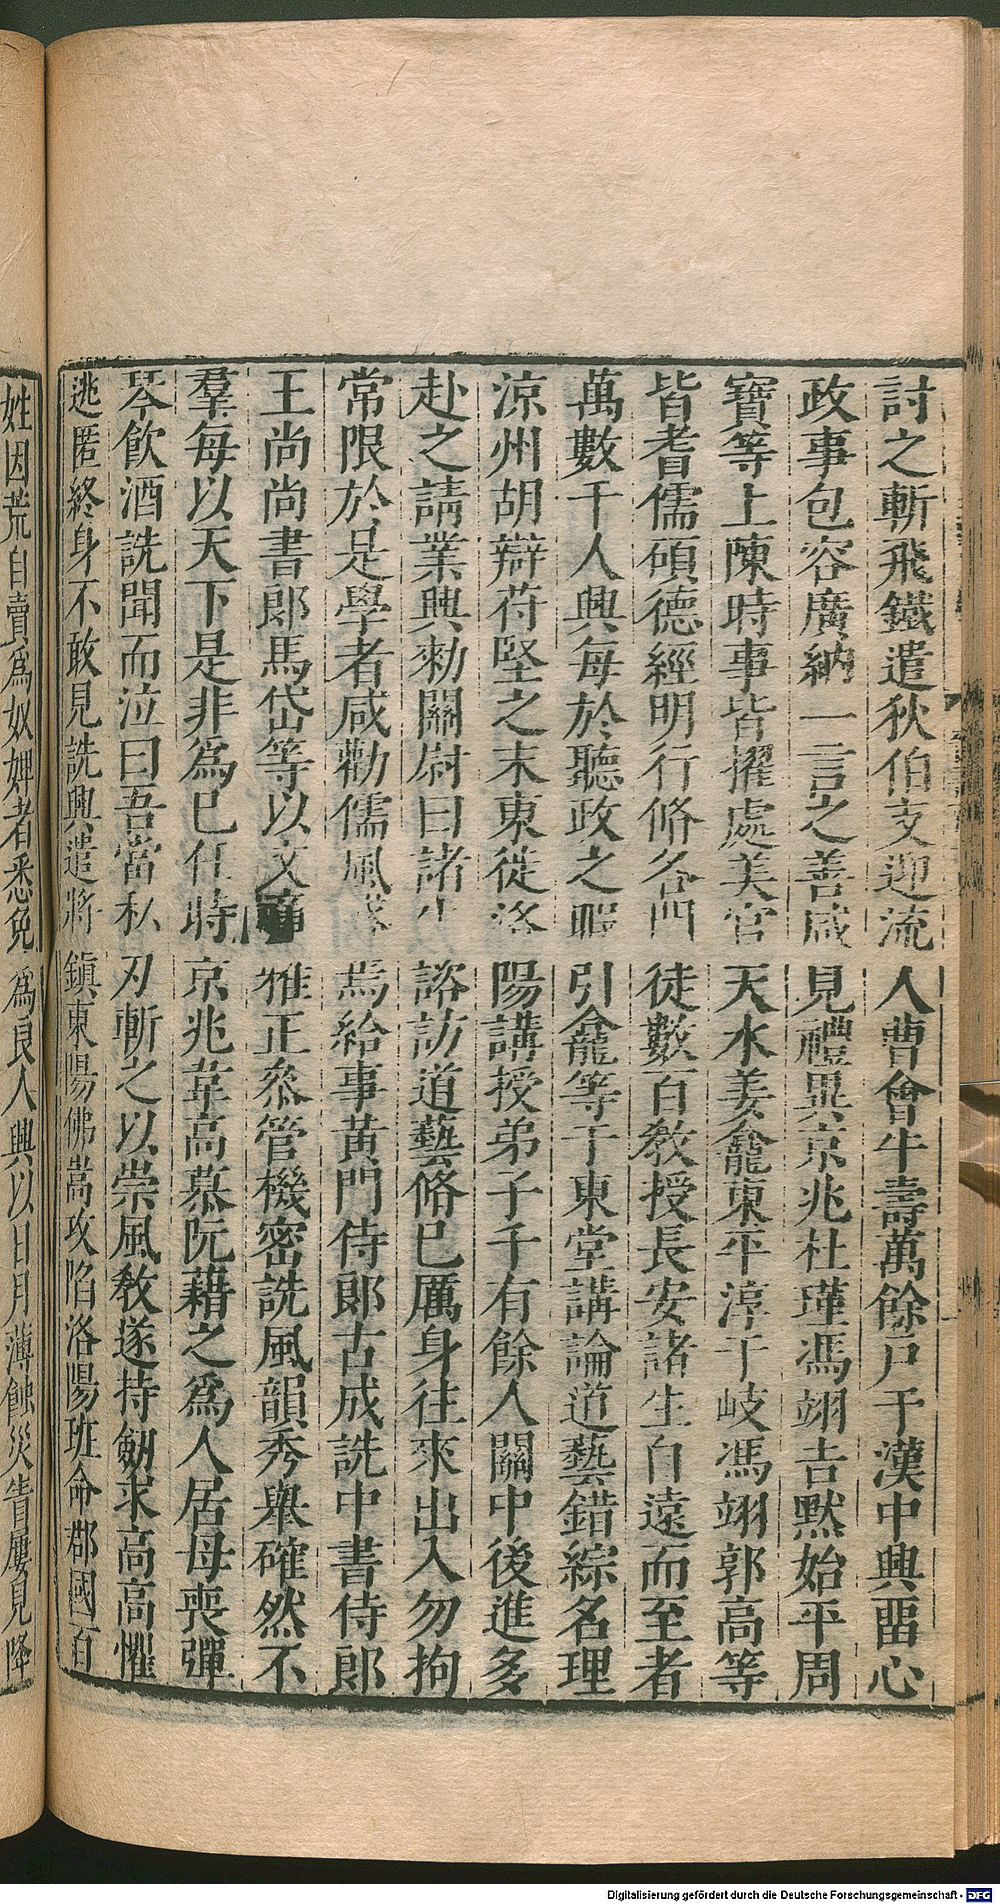 討之斬飛鐵遣狄伯支迎流人曹會牛壽萬餘戸于漢中興畱心
政事包容廣納一言之善咸見禮異京兆杜瑾馮翊吉默始平周
寶等上陳時事皆擢處美官天水姜龕東平淳于岐馮翊郭高等
皆耆儒碩德經明行脩各門徒數百敎授長安諸生自遠而至者
萬數千人興每於聽政之暇引龕等于東堂講論道藝錯綜名理
涼州胡辯苻堅之末東徙洛陽講授弟子千有餘人關中後進多
赴之請業興勑關尉曰諸生諮訪道藝脩已厲身往來出入勿拘
常限於是學者咸勸儒風盛焉給事黃門侍郎古成詵中書侍郎
王尚尚書郎馬岱等以文章雅正叅管機密詵風韻秀舉確然不
羣每以天下是非為已任時京兆韋高慕阮藉之爲人居母喪彈
琴飲酒詵聞而泣曰吾當私刃斬之以崇風敎遂持劒求高高懼
逃匿終身不敢見詵興遣將鎮東陽佛嵩攻陷洛陽班命郡國百
姓因荒自賣爲奴婢者悉免爲良人興以日月薄蝕災眚屢見降
Digitalisierung gefördert durch die Deutsche Forschungsgemeinschaft - DFG